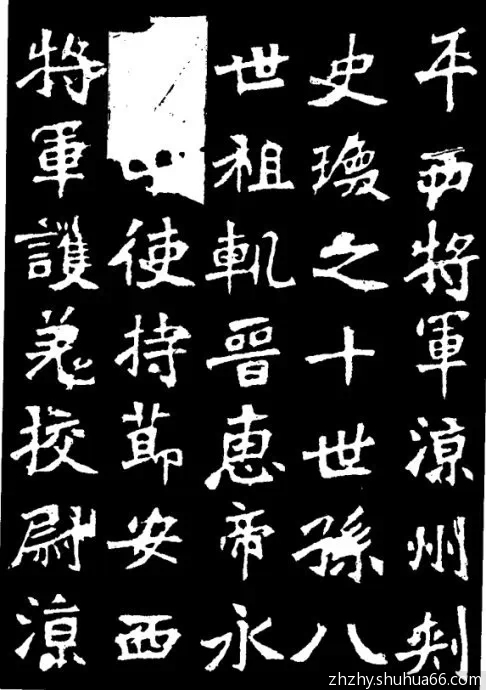 平西將軍涼州刺
史瓊之十世孫八
世祖軌晉惠帝永
使持節安西
將軍護羌校尉涼
zhzhy.shuhua66.com